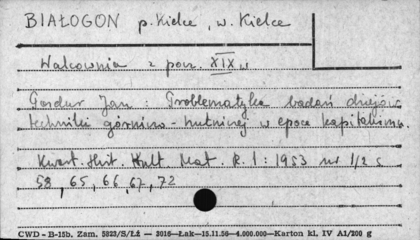 BIAŁOGON p. Kielce, w. Kielce
Walcownia z pocz. XIX w
Gordur Jan: Problematyka badań dziejów
techniki górniczo-hutniczej w epoce kapitalizmu
Kwart. Hist. Kult Mat. R. 1: 1953 nr 1/2 s
58, 65, 66, 67, 72
CWD - B-15b. Zam. 5823/S/Łż — 3016—Łak—15.11.56—4.000.000—Karton kl. IV A1/200 g